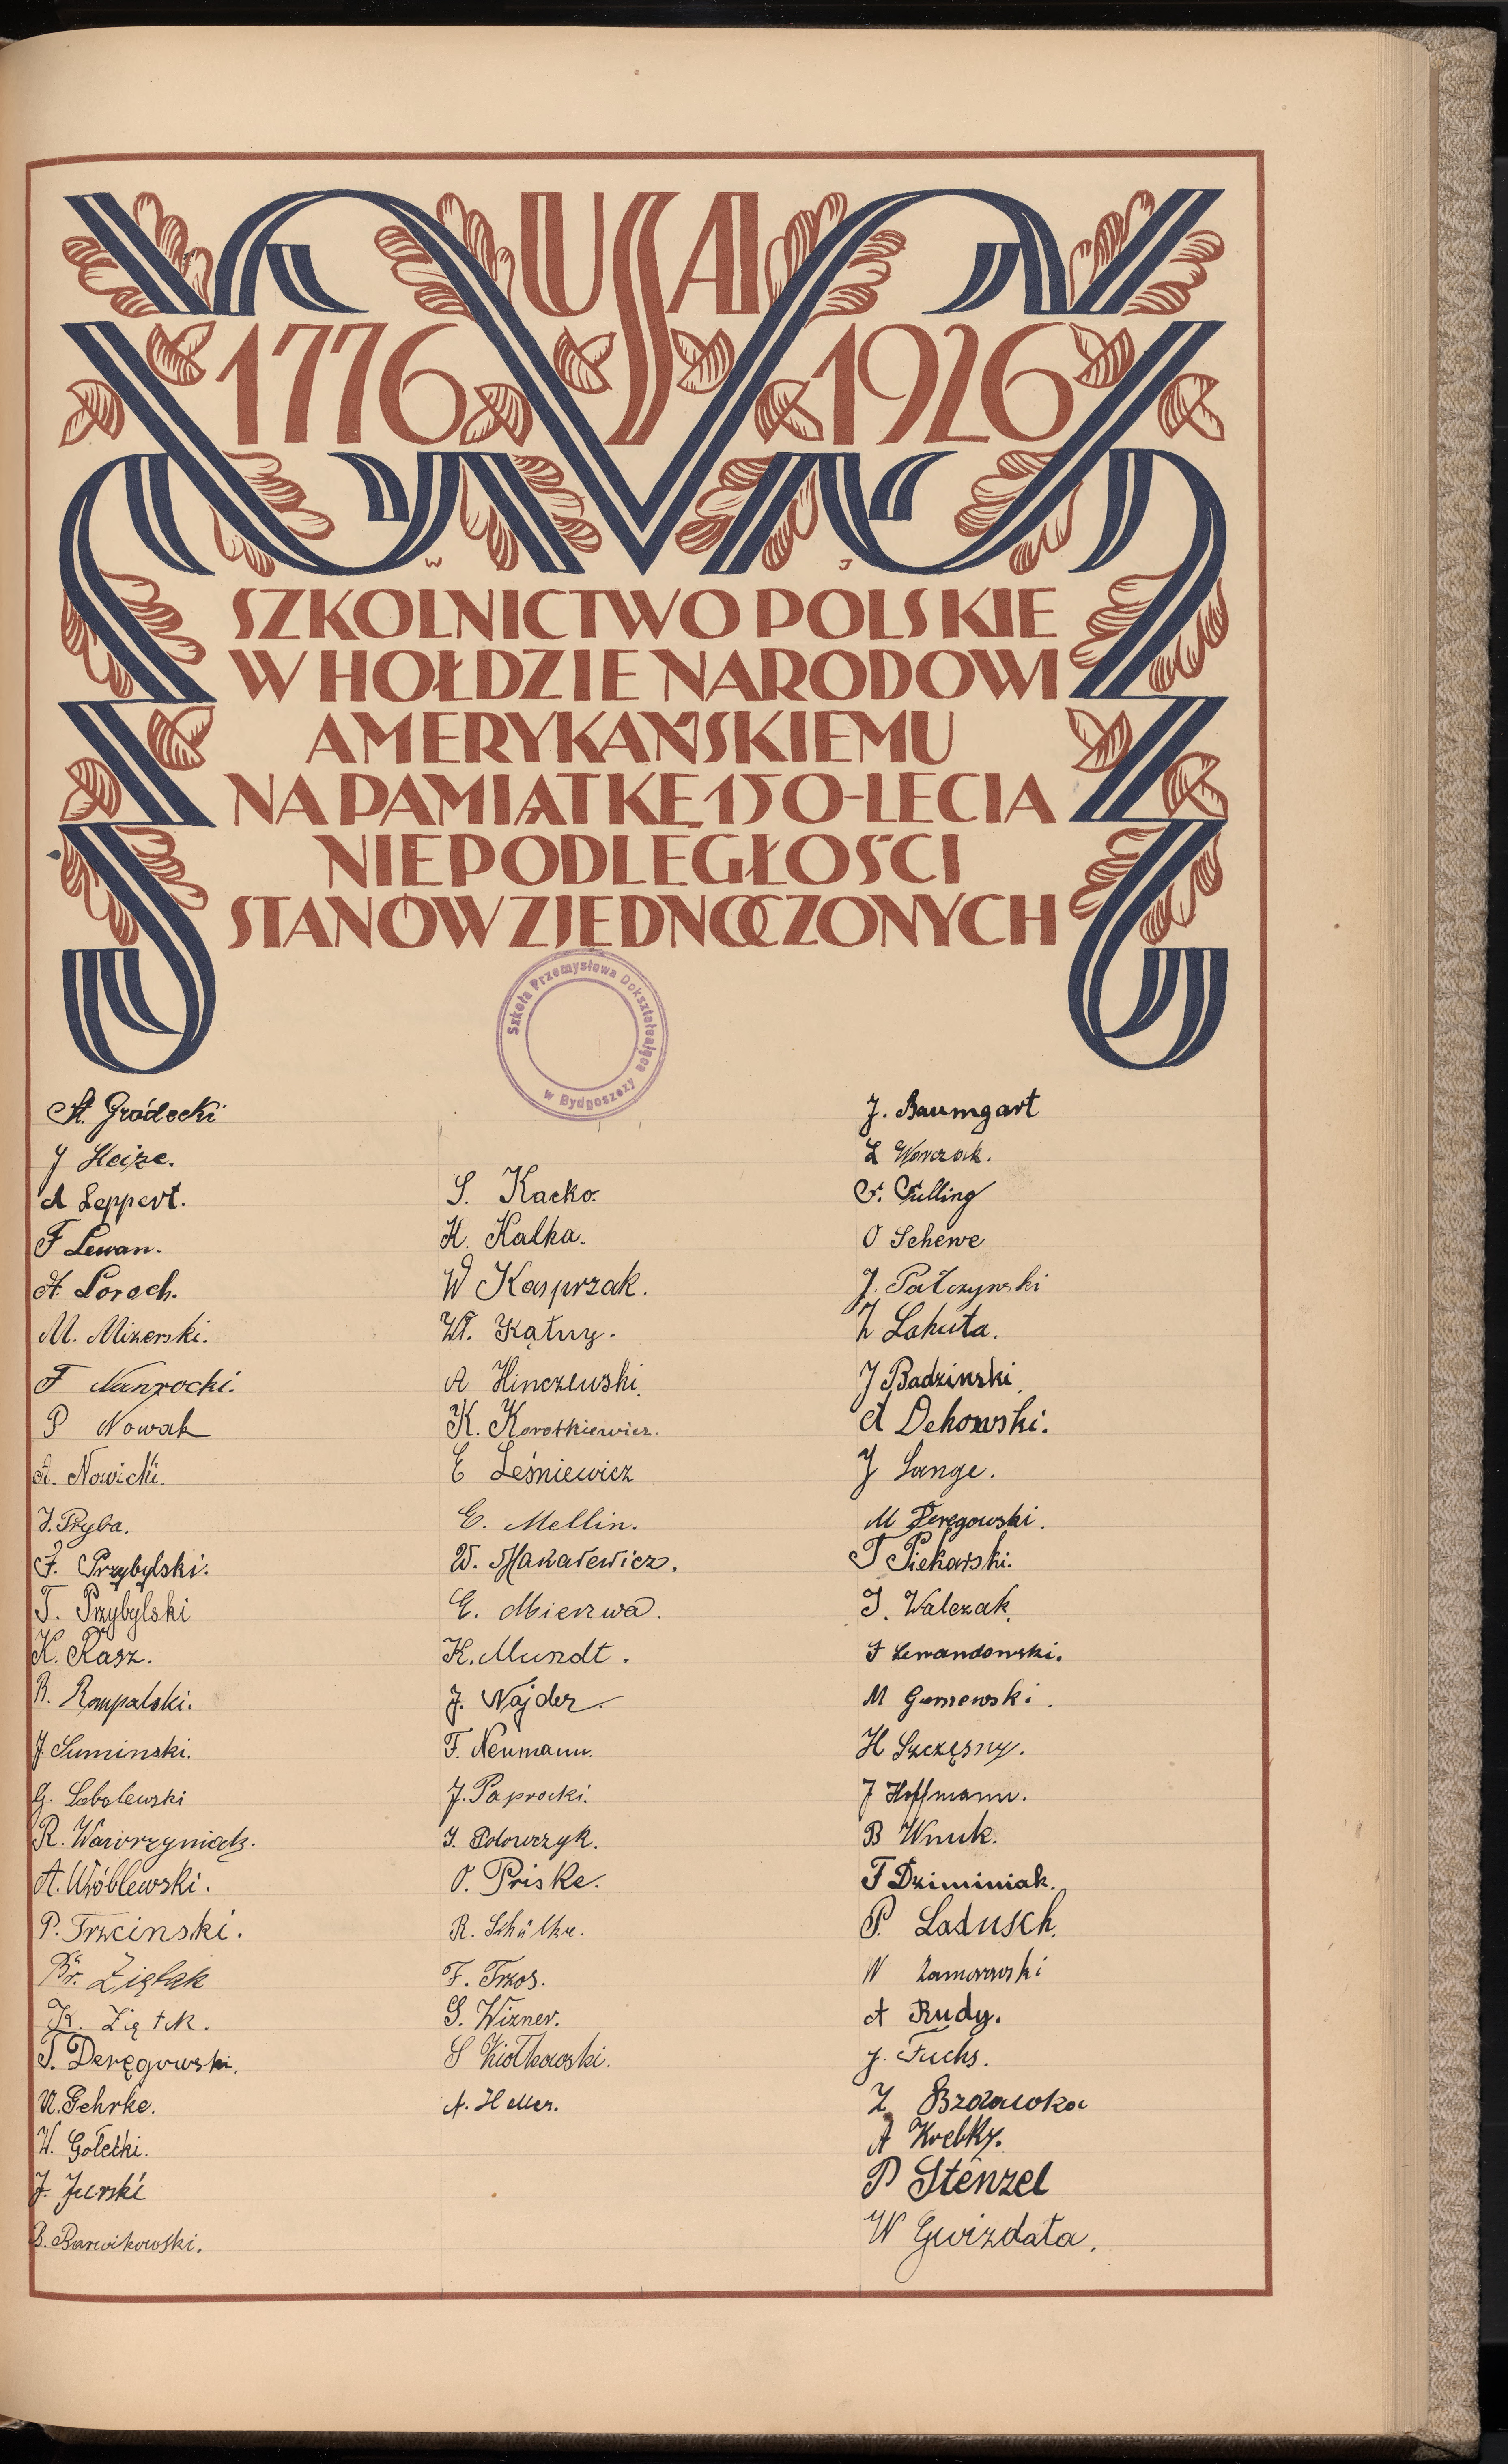 USA
1776 1926
W J
SZKOLNICTWO POLSKIE
W HOŁDZIE NARODOWI
AMERYKAŃSKIEMU
NA PAMIĄTKĘ 150-LECIA
NIEPODLEGŁOŚCI
STANÓW ZJEDNOCZONYCH
Szkoła Przemysłowa Dokształcająca
w Bydgoszczy
St. Gródecki
J Heize.
A Leppert.
F Lewan.
A. Loroch.
M. Mizerski.
F Nawrocki.
P Nowak
A. Nowicki.
J. Pryba.
F. Przybylski.
T. Przybylski
K. Rasz.
R. Rompalski.
J. Suminski.
G. Sobolewski
R. Wawrzyniak.
A. Wróblewski.
P. Trzcinski.
Br. Ziętak
K. Ziętek.
T. Deręgowski.
A. Gehrke.
W. Gołecki.
J. Jurski
B. Barwikowski.
S. Kacko.
K. Kalka.
W Kasprzak.
Wł. Kątny.
A Hinczewski.
K. Korotkiewicz.
E Leśniewicz
E. Mellin.
W. Makarewicz.
E. Mierzwa.
K. Mundt.
J. Najder.
F. Neumann.
J. Paprocki.
J. Polowczyk.
O. Priske.
R. Schülke.
F. Trzos.
S. Wizner.
S Ziołkowski.
A. Heller.
J. Baumgart
L Warczak.
F. Fulling
O Schewe
J. Patczynski
Z Lahuta.
J Badzinski.
A Dekowski.
J Lange.
M Deręgowski.
T Piekarski.
J. Walczak.
F Lewandowski.
M Gumewski.
H Szczęsny.
J Hoffmann.
B Wnuk.
F Dziminiak.
P. Ladusch.
N Zamorowski
A Rudy.
J. Fuchs.
Z Brzdawka
A Krebky.
P Stenzel
W Gwizdała.